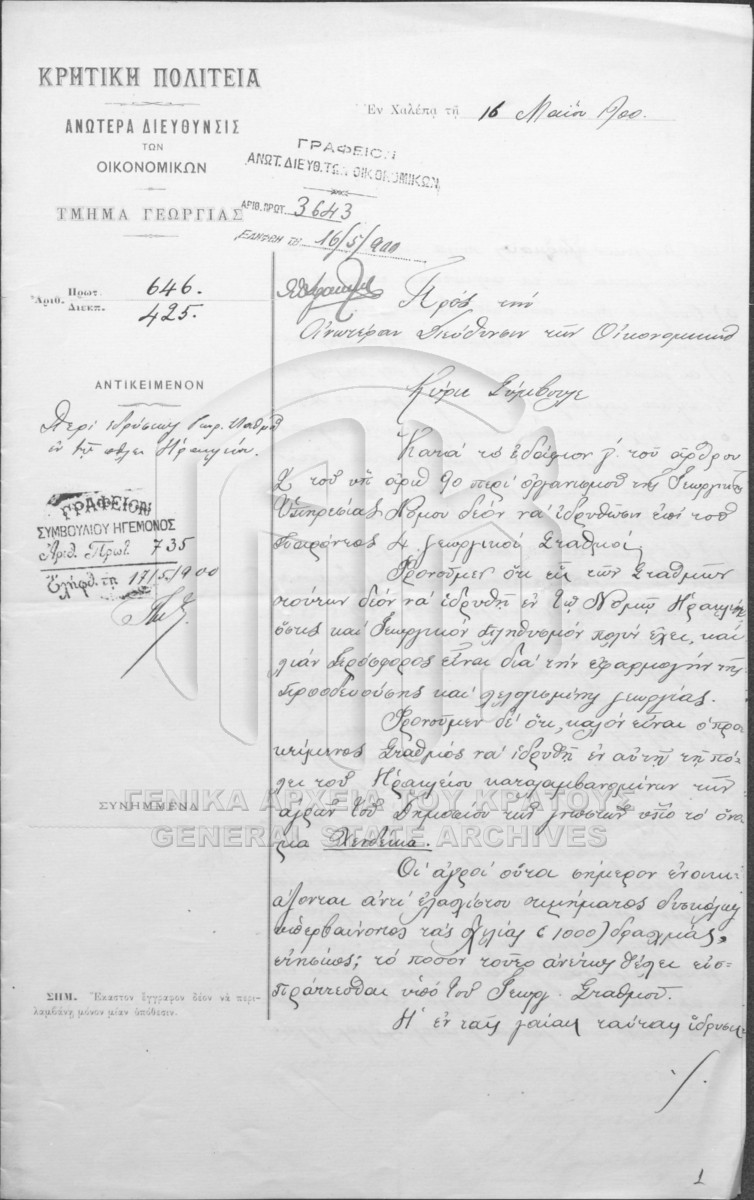 ΚΡΗΤΙΚΗ ΠΟΛΙΤΕΙΑ
ΑΝΩΤΕΡΑ ΔΙΕΥΘΥΝΣΙΣ
ΤΩΝ
ΟΙΚΟΝΟΜΙΚΩΝ
ΤΜΗΜΑ ΓΕΩΡΓΙΑΣ
Ἐν Χαλέπᾳ τῇ 16 Μαΐου 900.
ΓΡΑΦΕΙΟΝ
ΑΝΩΤ. ΔΙΕΥΘ. ΤΩΝ ΟΙΚΟΝΟΜΙΚΩΝ
ΑΡΙΘ. ΠΡΩΤ. 3643
ΕΛΗΦΘΗ ΤΗ 16/5/900
Ἀριθ. Πρωτ. 646.
Διεκπ. 425.
ΑΝΤΙΚΕΙΜΕΝΟΝ
Περὶ ἱδρύσεως Γεωρ. Σταθμοῦ
ἐν τῇ πόλει Ἡρακλείου.
ΓΡΑΦΕΙΟΝ
ΣΥΜΒΟΥΛΙΟΥ ΗΓΕΜΟΝΟΣ
Ἀριθ. Πρωτ. 735
Ἐλήφθ. τῇ 17/5/900
ΣΥΝΗΜΜΕΝΑ
ΣΗΜ. Ἕκαστον ἔγγραφον δέον νὰ περι-
λαμβάνῃ μόνον μίαν ὑπόθεσιν.
Πρὸς τὴν
Ἀνωτέραν Διεύθυνσιν τῶν Οἰκονομικῶν
Κύριε Σύμβουλε
Κατὰ τὸ ἐδάφιον γ. τοῦ ἄρθρου
2 τοῦ ὑπ' ἀριθ 90 περὶ ὀργανισμοῦ τῆς Γεωργικῆς
Ὑπηρεσίας Νόμου δέον νὰ ἱδρυθῶσιν ἐπὶ τοῦ
παρόντος 4 γεωργικοὶ Σταθμοί.
Φρονοῦμεν ὅτι εἷς τῶν Σταθμῶν
τούτων δέον νὰ ἱδρυθῇ ἐν τῷ Νομῷ Ἡρακλείου
ὅστις καὶ Γεωργικὸν πληθυσμὸν πολὺν ἔχει, καὶ
λίαν πρόσφορος εἶναι διὰ τὴν ἐφαρμογὴν τῆς
προοδευούσης καὶ λελογισμένης γεωργίας.
Φρονοῦμεν δὲ ὅτι, καλὸν εἶναι ὁ προ-
κείμενος Σταθμὸς νὰ ἱδρυθῇ ἐν αὐτῇ τῇ πό-
λει τοῦ Ἡρακλείου καταλαμβανομένων τῶν
ἀγρῶν τοῦ Δημοσίου τῶν γνωστῶν ὑπὸ τὸ ὄνο-
μα Χενδέκια.
Οἱ ἀγροὶ οὗτοι σήμερον ἐνοικι-
άζονται ἀντὶ ἐλαχίστου τιμήματος δυσκόλως
ὑπερβαίνοντος τὰς χιλίας (1000) δραχμὰς,
ἐτησίως; τὸ ποσὸν τοῦτο ἀνέτως θέλει εἰσ-
πράττεσθαι ὑπὸ τοῦ Γεωργ. Σταθμοῦ.
Ἡ ἐν ταῖς γαίαις ταύταις ἵδρυσις
./.
1
ΓΕΝΙΚΑ ΑΡΧΕΙΑ ΤΟΥ ΚΡΑΤΟΥΣ
GENERAL STATE ARCHIVES